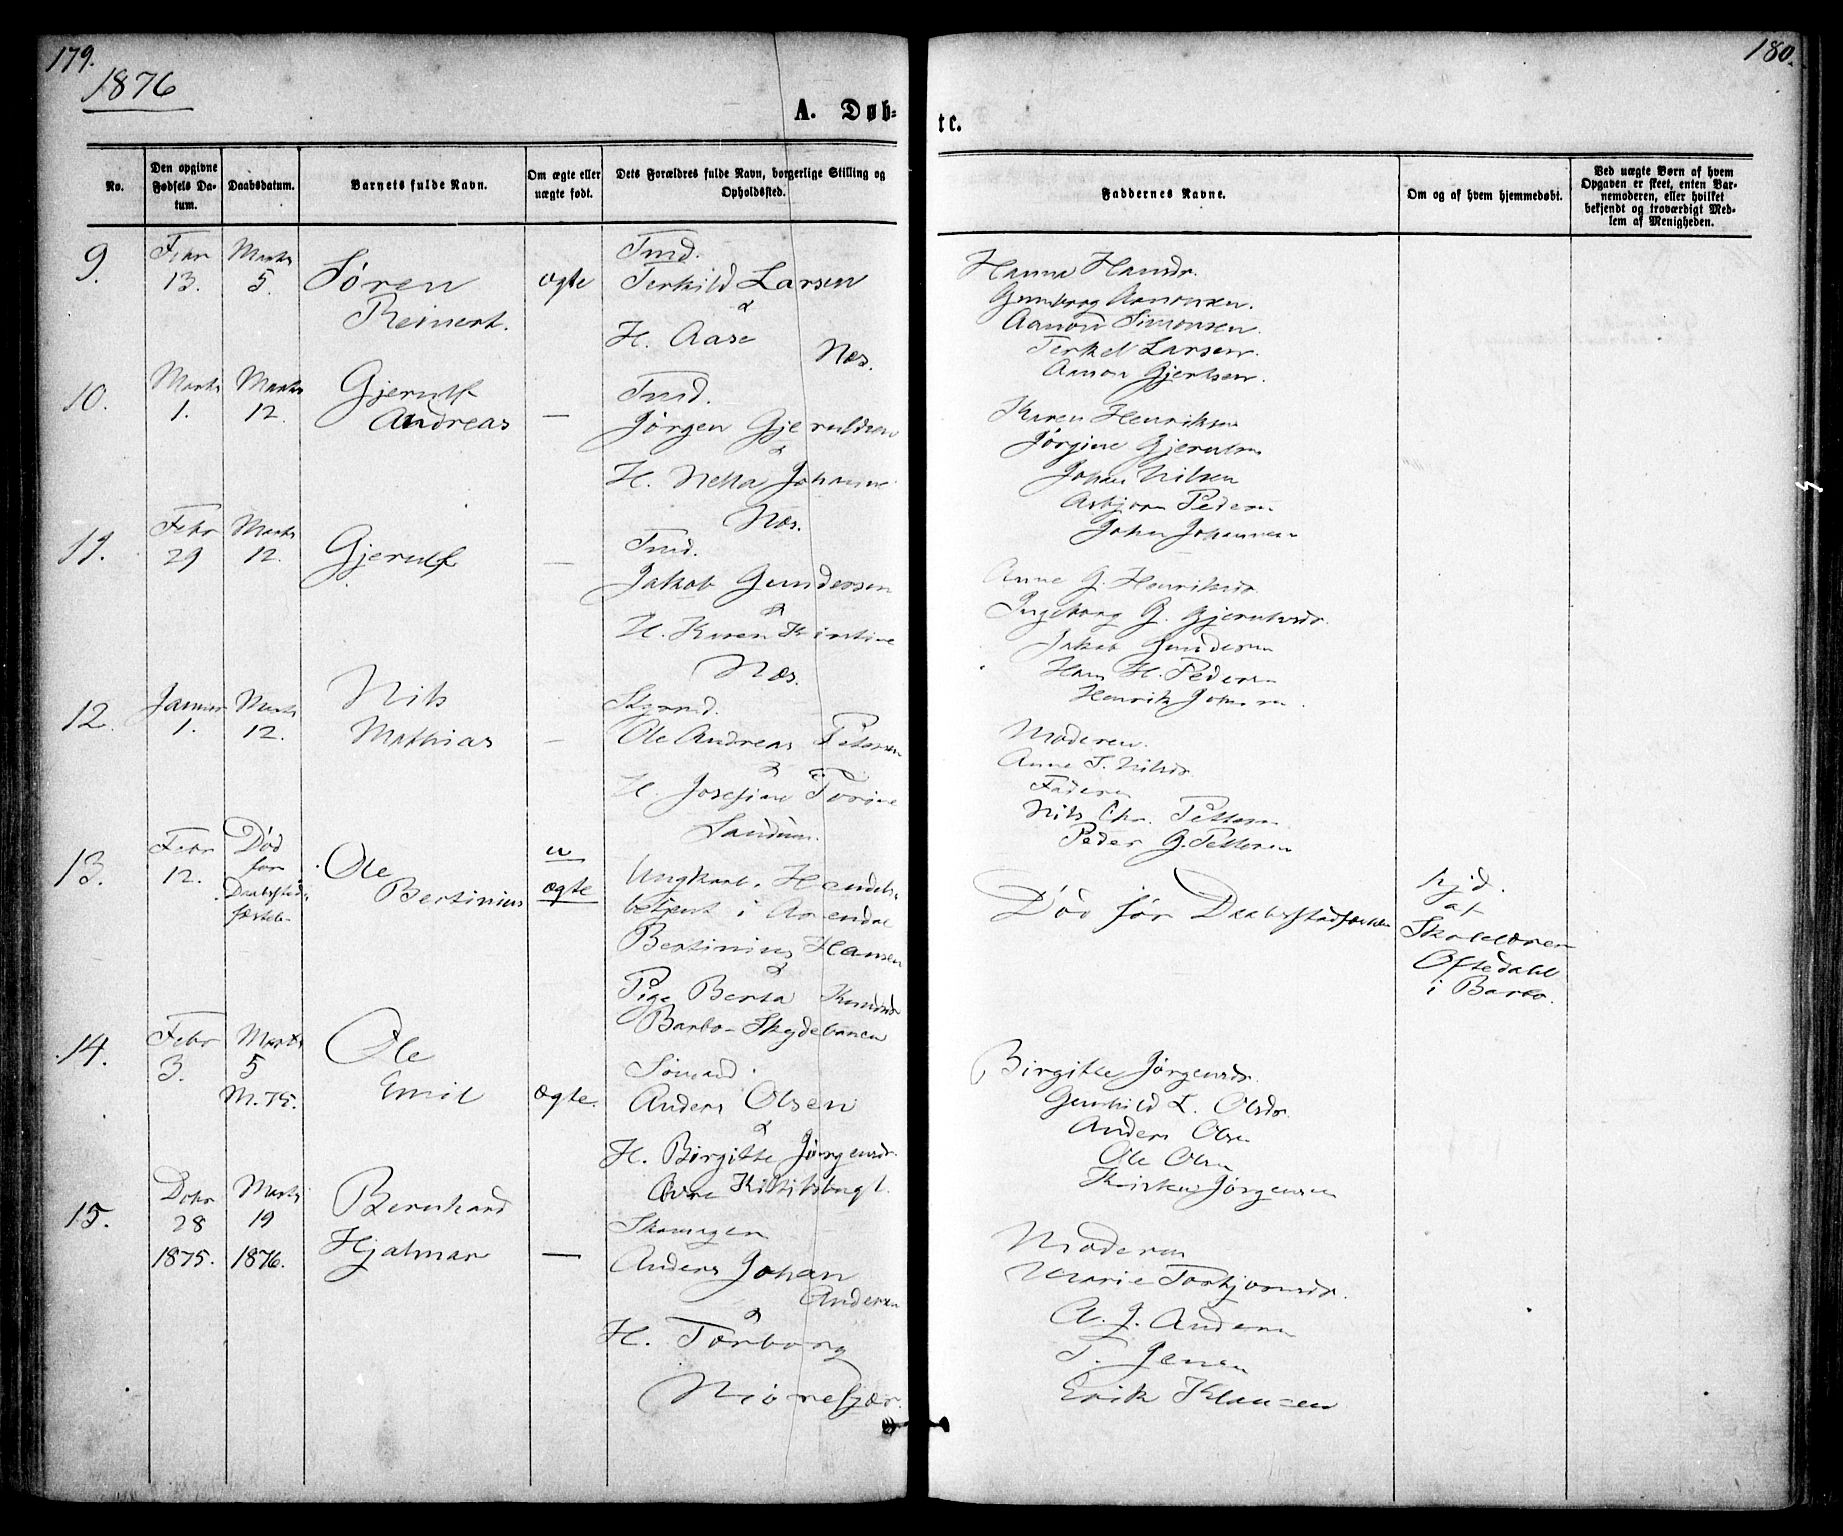 179.
1876
180.
A. Døb-
te.
No.
Den opgivne Fødsels Da-tum.
Daabsdatum.
Barnets fulde Navn.
Om ægte eller uægte født.
Dets Forældres fulde Navn, borgerlige Stilling og Opholdssted.
Faddernes Navne.
Om og af hvem hjemmedøbt.
Ved uægte Børn af hvem Opgaven er skeet, enten Bar-nemoderen, eller hvilket bekjendt og troværdigt Med-lem af Menigheden.
9.
Febr 13.
Marts 5.
Søren
Reinert.
ægte
Tmd.
Terkild Larsen
&
H. Aase
Næs.
Hanna Hansdr.
Gunborg Aanonsen.
Aanon Simonsen.
Terkel Larsen.
Aanon Gjertsen.
10.
Marts 1.
Marts 12.
Gjerulf
Andreas
—
Tmd.
Jørgen Gjeruldsen
&
H. Netta Johanne
Næs.
Karen Henriksen
Jørgine Gjerulsen
Johan Nilsen
Asbjørn Pedersen
Johan Johannesen
11.
Febr 29
Marts 12.
Gjerulf
—
Tmd.
Jakob Gundersen
&
H. Karen Kirstine
Næs.
Anne G. Henriksdr.
Ingeborg G. Gjerulsdr.
Jakob Gundersen
Hans H. Pedersen
Henrik Johnsen.
12.
Januar 1.
Marts 12.
Nils
Mathias
—
Ole Andreas Pettersen
&
H. Josefine Torine
Sandum.
Moderen.
Anne T. Nilsdr.
Faderen
Nils Chr. Pettersen
Peder G. Pettersen
13.
Febr 12.
Død
før
Daabsstad-
fæstels-
Ole
Bertinius
u
ægte
Ungkarl. Handels-
betjent i Arendal
Bertinius Hansen
&
Pige Berta Knudsdr
Barbo - Skydebanen
Død før Daabsstadfæstelsen
hjd.
af
Skolelærer
Oftedahl
i Barbo.
14.
Febr 3.
Marts 5
M.75.
Ole
Emil
ægte.
Sømand.
Anders Olsen
&
H. Birgitte Jørgensdr.
Birgitte Jørgensdr.
Gunhild L. Olsdr.
Anders Olsen
Ole Olsen
Kirsten Jørgensen
15.
Dcbr 28 1875.
Marts 19 1876.
Bernhard
Hjalmar
—
Anders Johan
Andersen
&
H. Torborg
Moderen
Marie Torbjørnsdr.
A. J. Andersen
T. Jensen
Erik Klausen